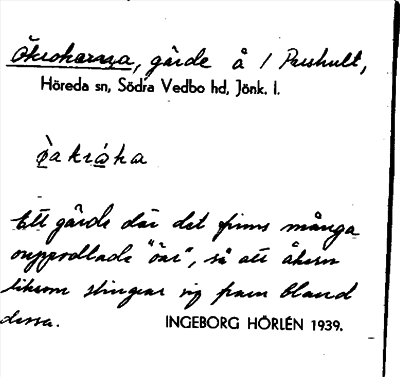 gärde å 1 Pershult,
Höreda sn, Södra Vedbo hd, Jönk. l.
Ett gärde där det finns många
ouppodlade "öar", så att åkern
liksom slingrar sig fram bland
dessa.
INGEBORG HÖRLÉN 1939.